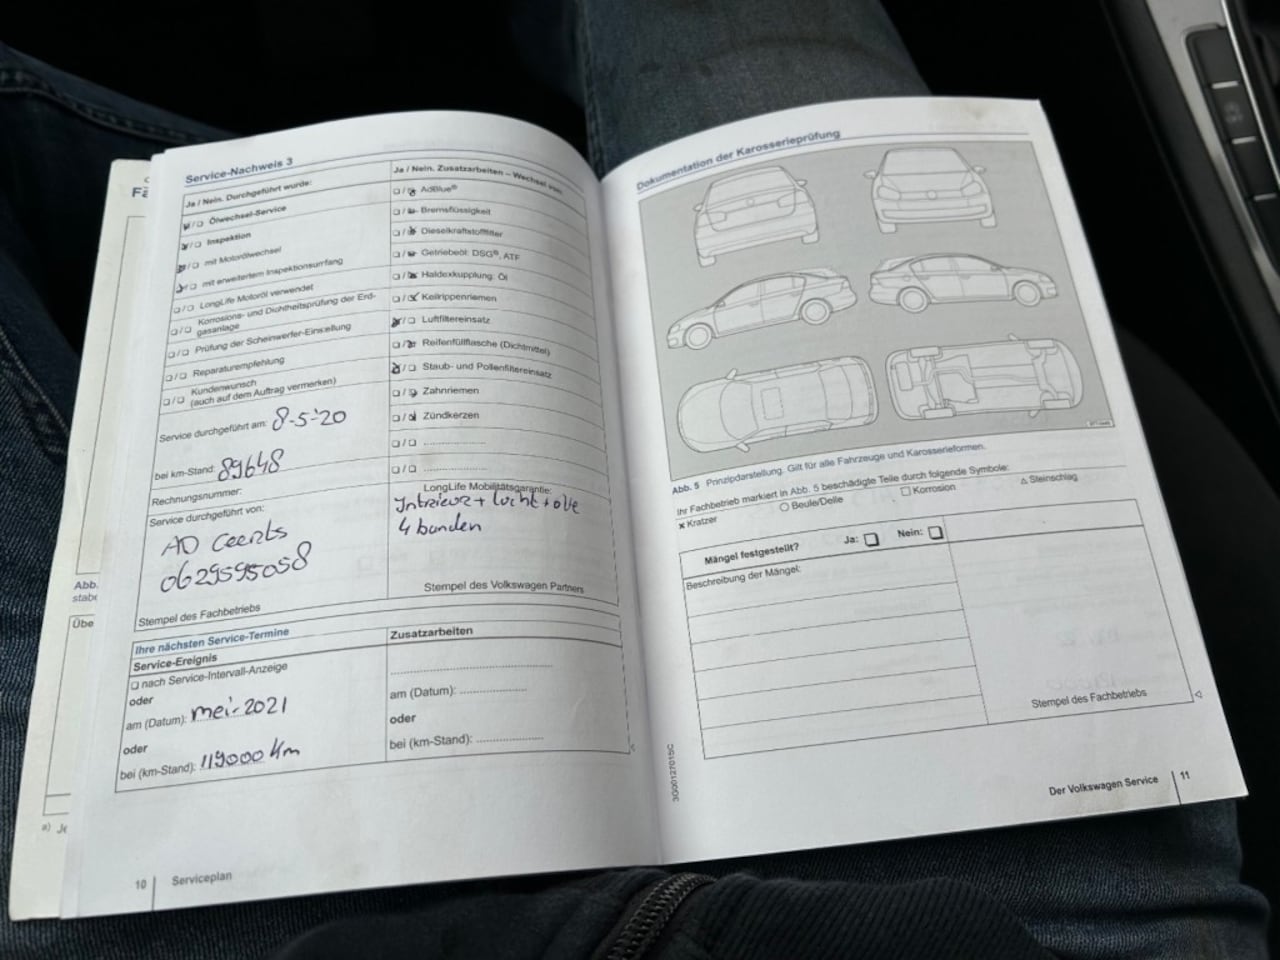 Service-Nachweis 3
Ja / Nein. Durchgeführt wurde:
☐ Ölwechsel-Service
☐ Inspektion
☐ mit Motorölwechsel
☐ mit erweitertem Inspektionsumfang
☐/☐ LongLife Motoröl verwendet
☐/☐ Korrosions- und Dichtheitsprüfung der Erd-
gasanlage
☐/☐ Prüfung der Scheinwerfer-Einstellung
☐/☐ Reparaturempfehlung
☐/☐ Kundenwunsch
(auch auf dem Auftrag vermerken)
Service durchgeführt am: 8-5-'20
bei km-Stand: 89648
Rechnungsnummer:
Service durchgeführt von:
AD Geerts
0629595058
Stempel des Fachbetriebs
Ja / Nein. Zusatzarbeiten – Wechsel von:
AdBlue®
Bremsflüssigkeit
Dieselkraftstofffilter
Getriebeöl: DSG®, ATF
Haldexkupplung: Öl
Keilrippenriemen
Luftfiltereinsatz
Reifenfüllflasche (Dichtmittel)
Staub- und Pollenfiltereinsatz
Zahnriemen
Zündkerzen
☐/☐ ....................
☐/☐ ....................
LongLife Mobilitätsgarantie:
Interieur + lucht + olie
4 banden
Stempel des Volkswagen Partners
Ihre nächsten Service-Termine
Service-Ereignis
☐ nach Service-Intervall-Anzeige
oder
am (Datum): mei-2021
oder
bei (km-Stand): 119000 km
Zusatzarbeiten
........................................
am (Datum): ....................
oder
bei (km-Stand): ....................
10 Serviceplan
Abb.
Übe
Dokumentation der Karosserieprüfung
Abb. 5 Prinzipdarstellung. Gilt für alle Fahrzeuge und Karosserieformen.
Ihr Fachbetrieb markiert in Abb. 5 beschädigte Teile durch folgende Symbole:
× Kratzer ○ Beule/Delle □ Korrosion △ Steinschlag
Mängel festgestellt? Ja: ☐ Nein: ☐
Beschreibung der Mängel:
Stempel des Fachbetriebs
3G0012701SC
Der Volkswagen Service 11